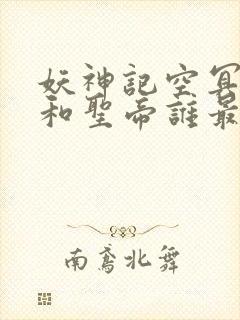 妖神記空冥
和聖帝誰最
南鳶北舞